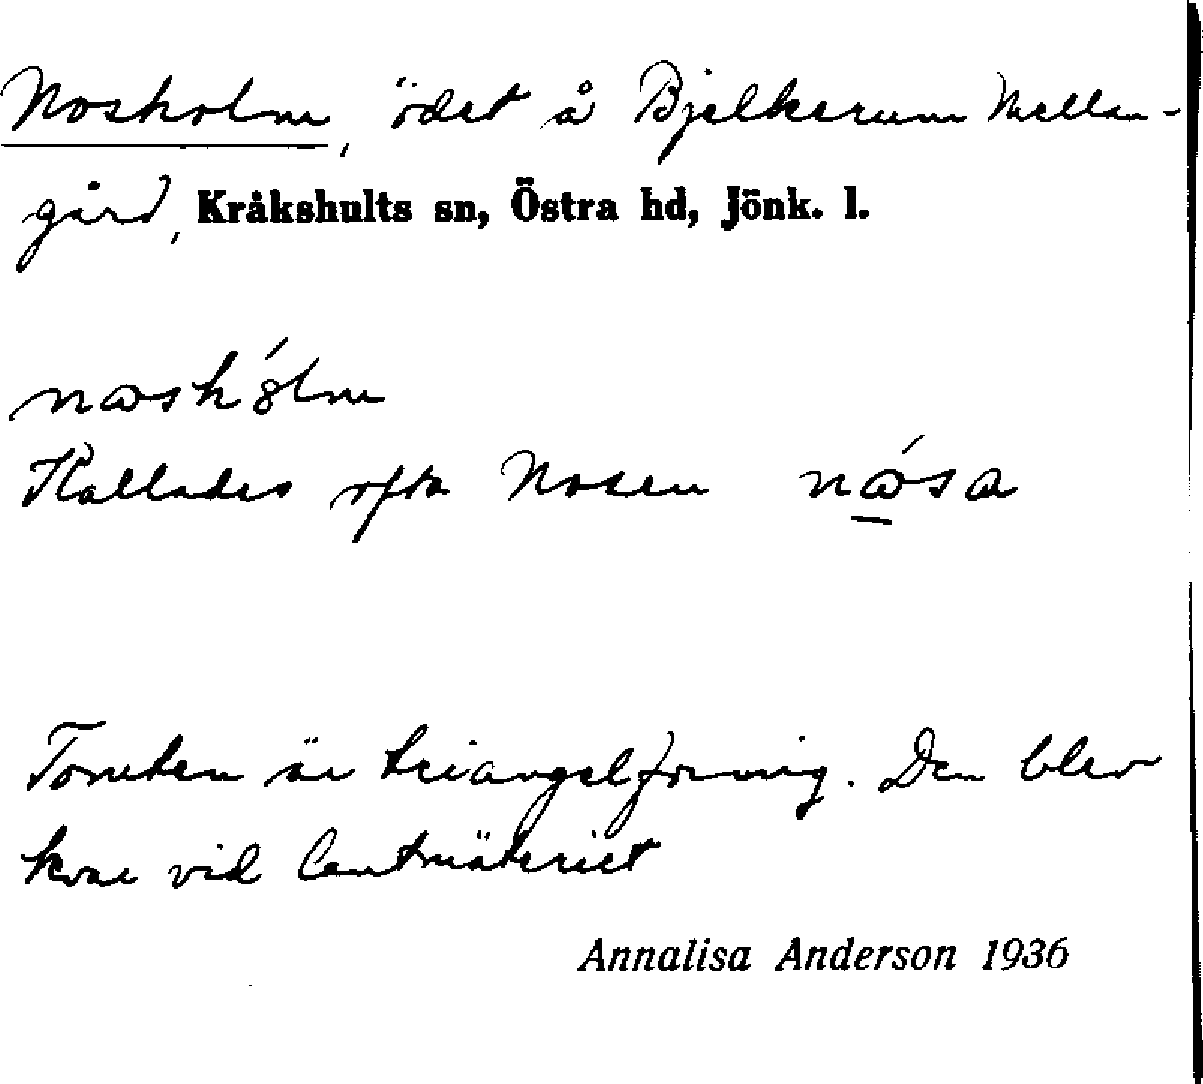 Nosholm, ödet å Bjelkerum Mellan-
gård, Kråkshults sn, Östra hd, Jönk. l.
Kallades ofta Nosen
Tomten är triangelformig. Den blev
kvar vid lantmäteriet
Annalisa Anderson 1936